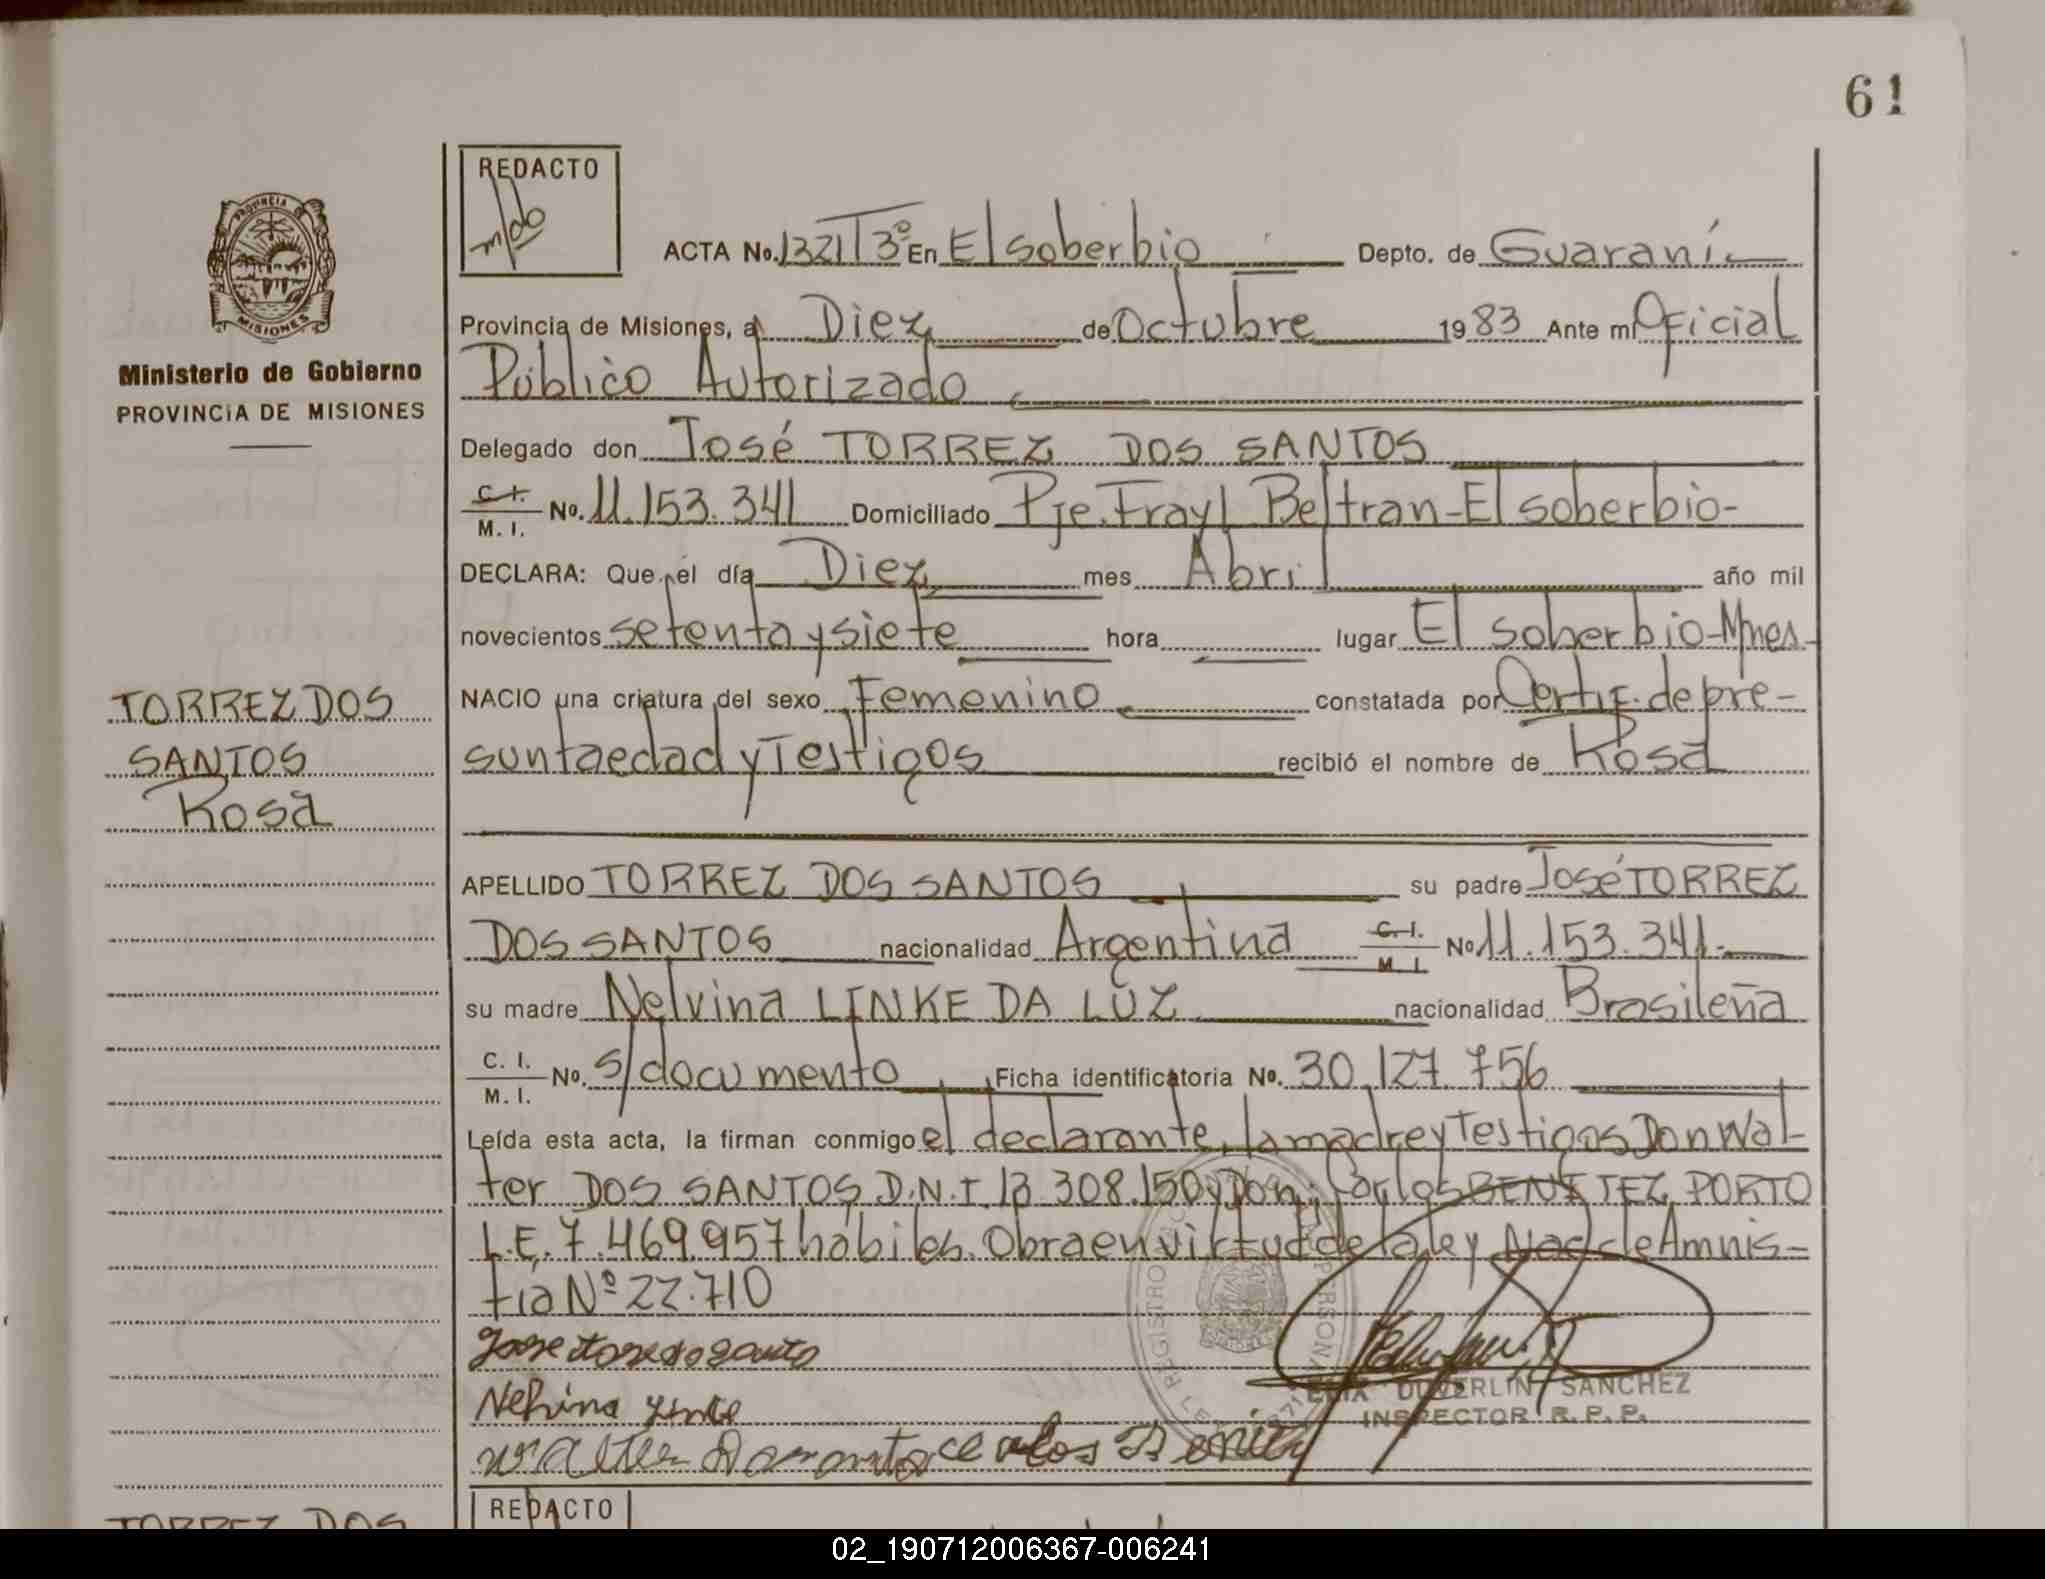 61
REDACTO
m/do
ACTA No. 1321 T 3º En El soberbio Depto. de Guaraní
PROVINCIA DE
MISIONES
Provincia de Misiones, a Diez de Octubre 1983 Ante mi Oficial
Ministerio de Gobierno
Público Autorizado
PROVINCIA DE MISIONES
Delegado don José TORREZ DOS SANTOS
C.I. M.I. No. 11.153.341 Domiciliado Pje. Fray L Beltran-El soberbio-
DECLARA: Que el día Diez mes Abril año mil
novecientos setenta y siete hora lugar El soberbio-Mnes-
TORREZ DOS
SANTOS
Rosa
NACIO una criatura del sexo Femenino constatada por Certif. de pre-
sunta edad y Testigos recibió el nombre de Rosa
APELLIDO TORREZ DOS SANTOS su padre José TORREZ
DOS SANTOS nacionalidad Argentina C.I. M.I. No 11.153.341.-
su madre Nelvina LINKE DA LUZ nacionalidad Brasileña
C.I. M.I. No. s/documento Ficha identificatoria No. 30.127.756
Leída esta acta, la firman conmigo el declarante, la madre y Testigos Don Wal-
ter DOS SANTOS D.N.I 13.308.150 y Don Carlos BENITEZ PORTO
L.E. 7.469.957 hábiles. Obra en virtud de la ley Nac de Amnis-
tia Nº 22.710
REGISTRO PERSONA
FELIX DUVERLIN SANCHEZ
INSPECTOR R.P.P.
REDACTO
TORREZ DOS
02_190712006367-006241